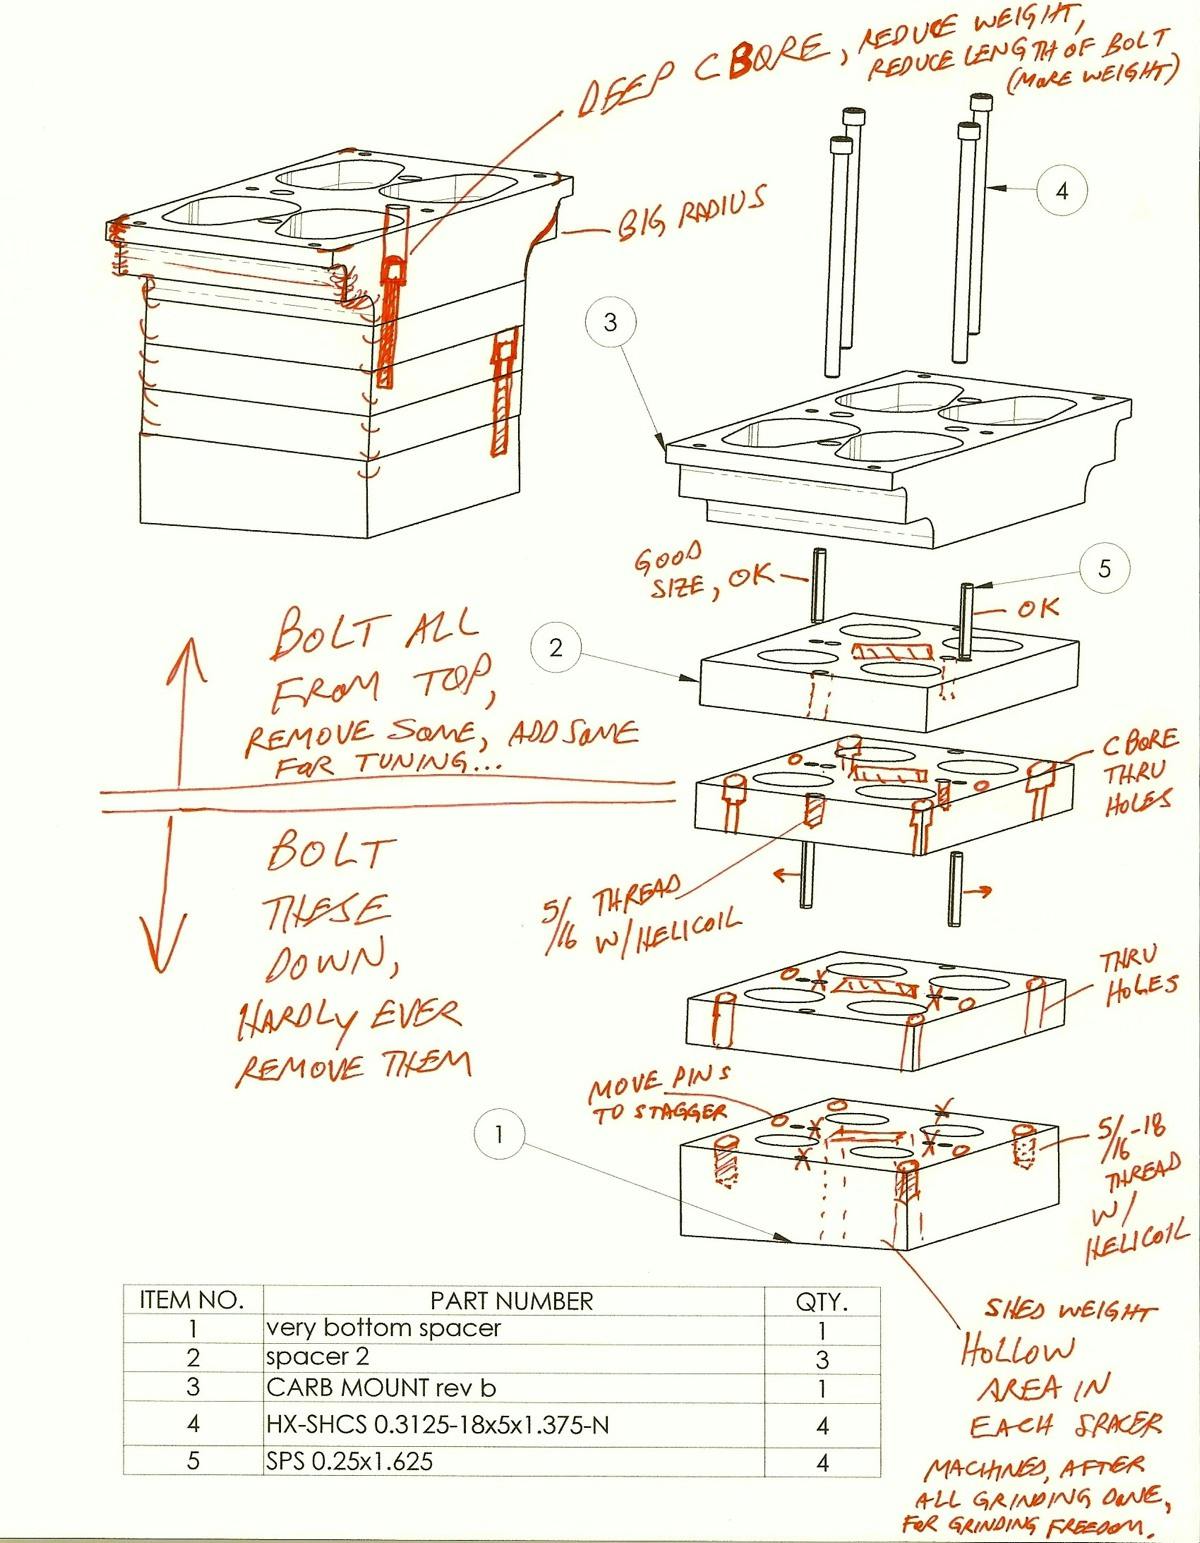 DEEP CBORE, REDUCE WEIGHT,
REDUCE LENGTH OF BOLT
(MORE WEIGHT)
4
BIG RADIUS
3
GOOD
SIZE, OK
5
OK
2
BOLT ALL
FROM TOP,
REMOVE SOME, ADD SOME
FOR TUNING...
C BORE
THRU
HOLES
BOLT
THESE
DOWN,
HARDLY EVER
REMOVE THEM
5/16 THREAD
W/HELICOIL
THRU
HOLES
MOVE PINS
TO STAGGER
1
5/16-18
THREAD
W/
HELICOIL
SHED WEIGHT
HOLLOW
AREA IN
EACH SPACER
MACHINED, AFTER
ALL GRINDING DONE,
FOR GRINDING FREEDOM.
ITEM NO. PART NUMBER QTY.
1 very bottom spacer 1
2 spacer 2 3
3 CARB MOUNT rev b 1
4 HX-SHCS 0.3125-18x5x1.375-N 4
5 SPS 0.25x1.625 4